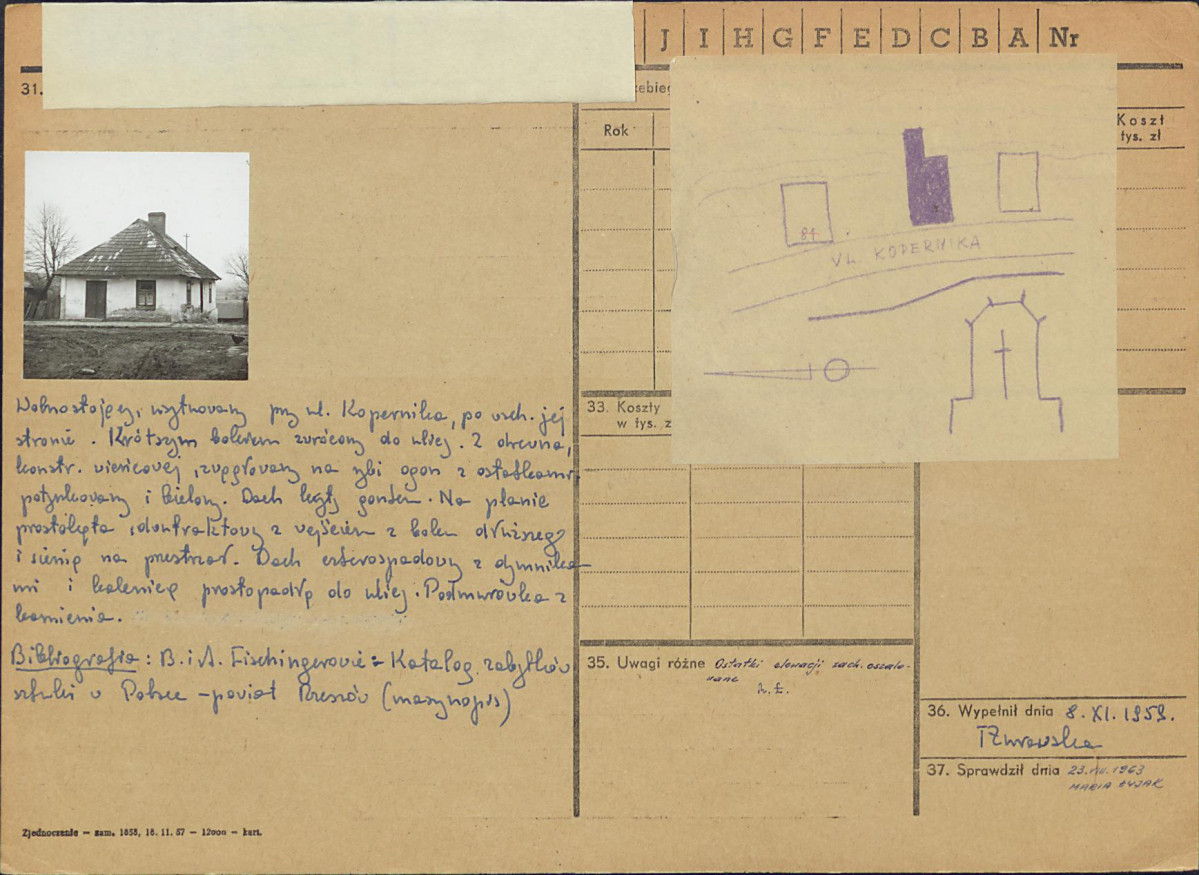 J I H G F E D C B A Nr
31.
zebieg
Rok
Koszt
tys. zł
84
UL. KOPERNIKA
Wolnostojący, usytuowany przy ul. Kopernika, po wsch. jej
stronie. Krótszym bokiem zwrócony do ulicy. Z drewna,
konstr. wieńcowej, zwęgłowany na rybi ogon z ostatkami,
potynkowany i bielony. Dach kryty gontem. Na planie
prostokąta, dwutraktowy z wejściem z boku dłuższego
i sienią na przestrzał. Dach czterospadowy z dymnika-
mi i kalenicą prostopadłą do ulicy. Podmurówka z
kamienia.
Bibliografia: B. i A. Fischingerowie: Katalog zabytków
sztuki w Polsce - powiat Rzeszów (maszynopis)
33. Koszty
w tys. z
35. Uwagi różne Ostatki elewacji zach. oszalo-
wane
36. Wypełnił dnia 8. XI. 1959.
TŻurowska
37. Sprawdził dnia 23.VII.1963
MARIA
Zjednoczenie — zam. 1858, 18. 11. 57 — 12000 — kart.